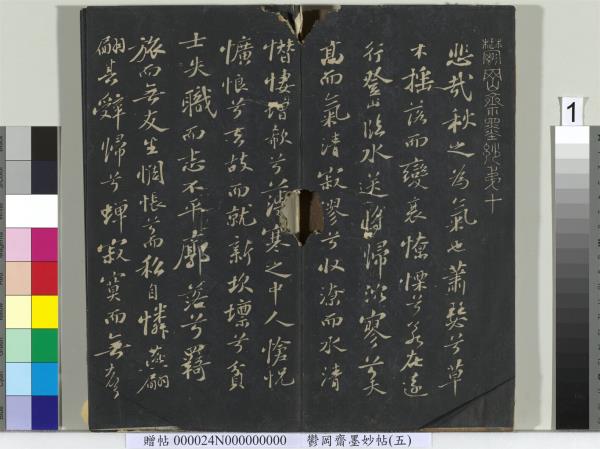 鬱岡齋墨妙第十
悲哉秋之為氣也蕭瑟兮草
木搖落而變衰憭慄兮若在遠
行登山臨水送將歸泬寥兮天
高而氣清寂寥兮收潦而水清
憯悽增欷兮薄寒之中人愴怳
懭悢兮去故而就新坎壈兮貧
士失職而志不平廓落兮羇
旅而無友生惆悵兮而私自憐燕翩
翩其辭歸兮蟬寂寞而無聲
1
贈帖 000024N000000000 鬱岡齋墨妙帖(五)